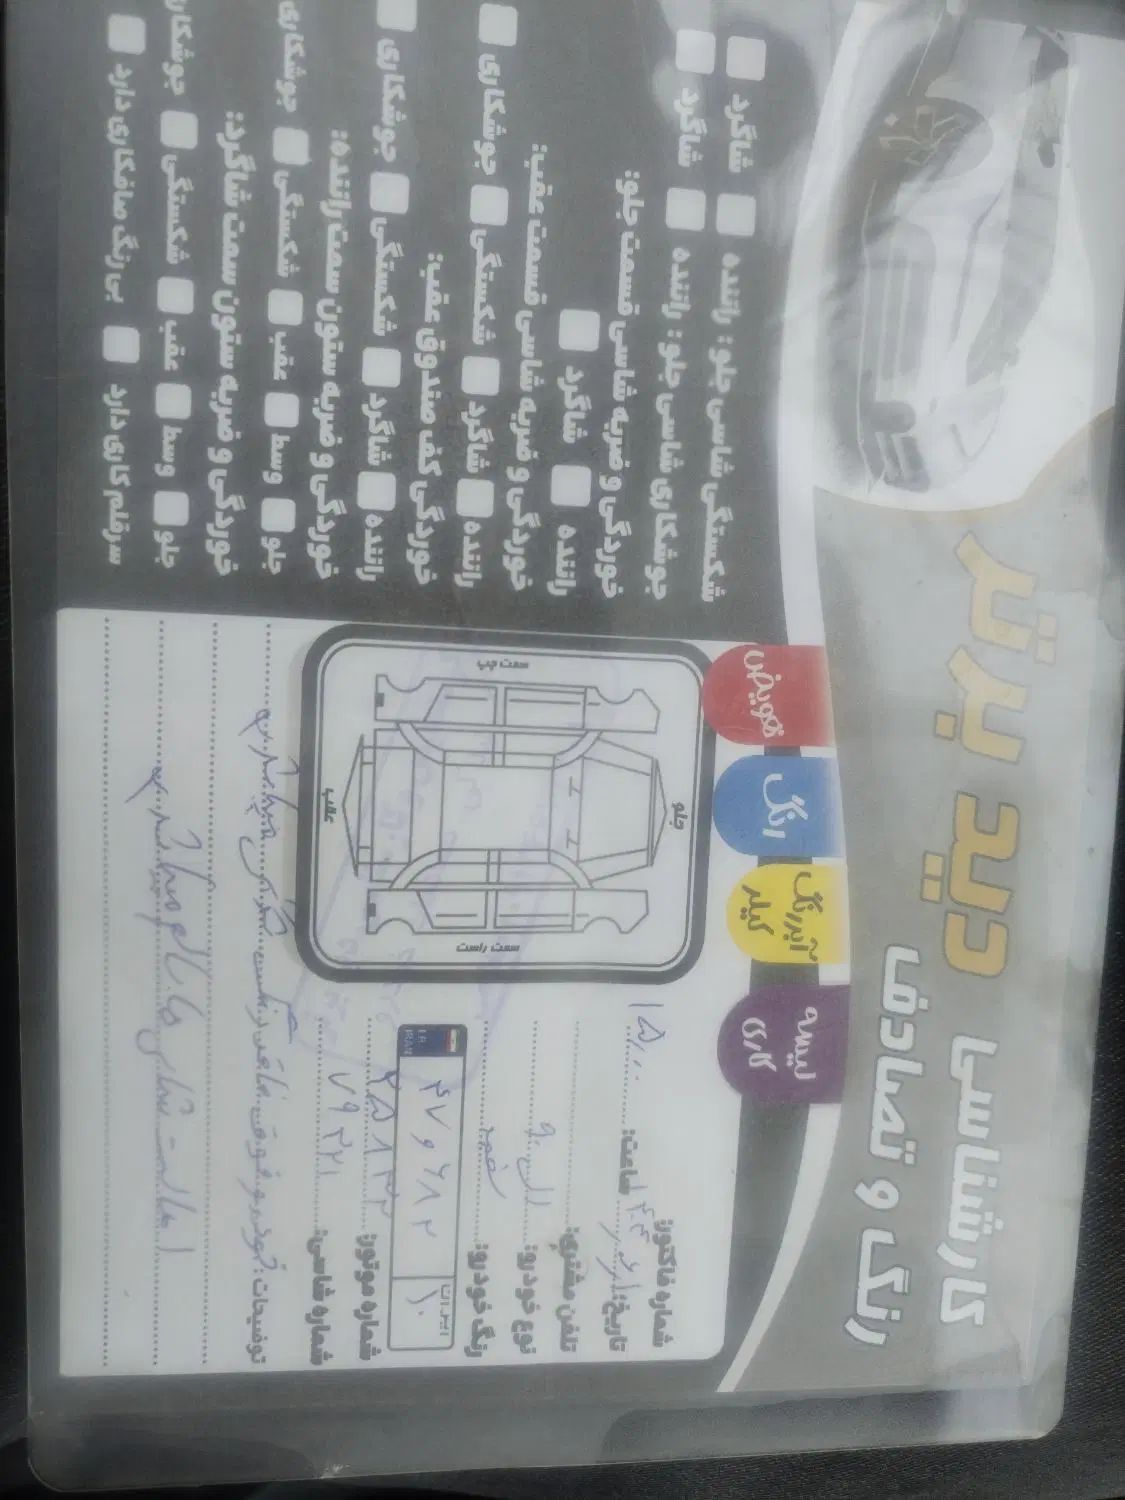 کارشناسی
رنگ و تصادف
دید برتر
تعویض
رنگ
آبرنگ
گیلر
لیسه
کاری
شماره فاکتور:
تاریخ: ساعت: ۱۵,۰۰
تلفن مشتری:
نوع خودرو: ال ۹۰
رنگ خودرو: سفید
۴۷ و ۶۸۲
ایران
۱۰
I.R.
IRAN
شماره موتور:
شماره شاسی: ۷۹۳۲۱
توضیحات: خودرو فوق فاقد رنگ
اصالت شاسی
سمت چپ
جلو
عقب
سمت راست
شکستگی شاسی جلو: راننده شاگرد
جوشکاری شاسی جلو: راننده شاگرد
خوردگی و ضربه شاسی قسمت جلو:
راننده شاگرد
خوردگی و ضربه شاسی قسمت عقب:
راننده شاگرد شکستگی جوشکاری
خوردگی کف صندوق عقب:
راننده شاگرد شکستگی جوشکاری
خوردگی و ضربه ستون سمت راننده:
جلو وسط عقب شکستگی جوشکاری
خوردگی و ضربه ستون سمت شاگرد:
جلو وسط عقب شکستگی جوشکار
سرقلم کاری دارد بی رنگ صافکاری دارد